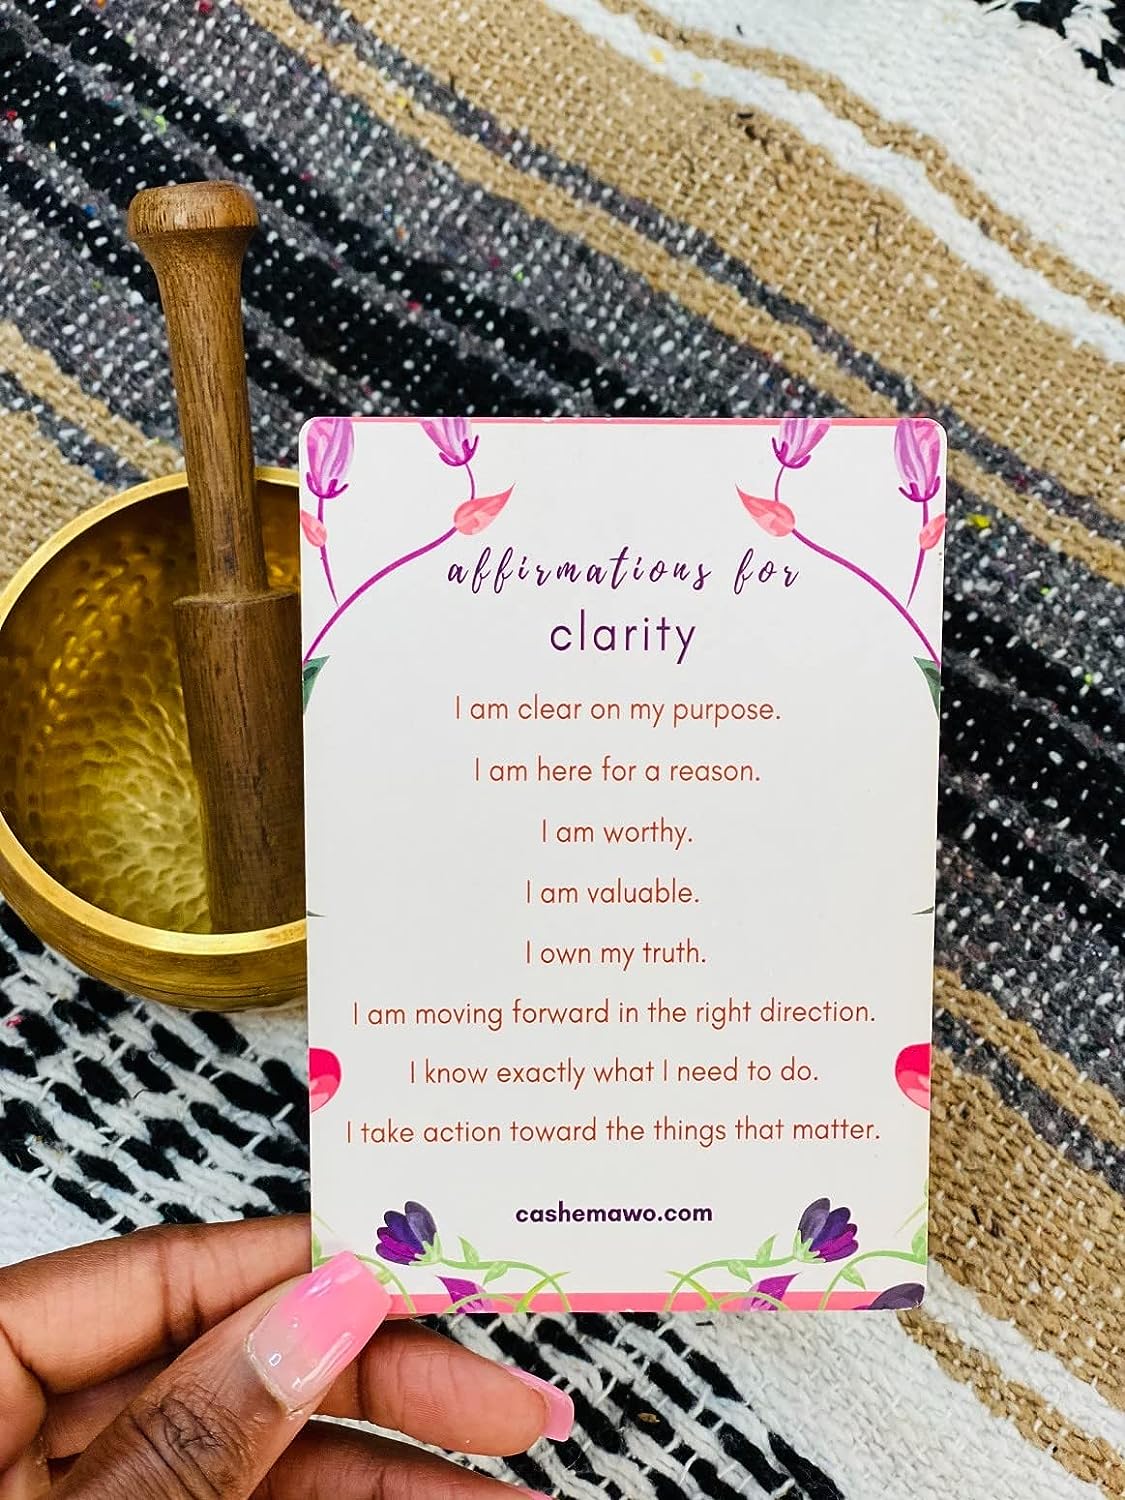 affirmations for
clarity
I am clear on my purpose.
I am here for a reason.
I am worthy.
I am valuable.
I own my truth.
I am moving forward in the right direction.
I know exactly what I need to do.
I take action toward the things that matter.
cashemawo.com